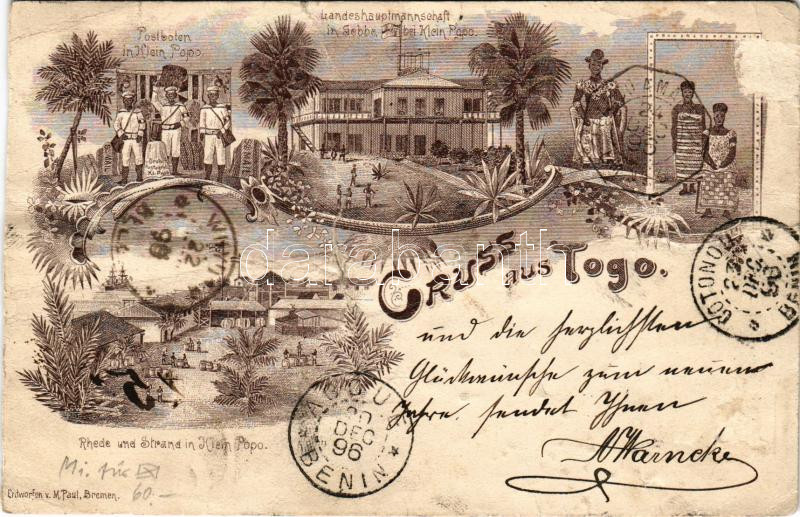 Postboten
in Klein Popo.
Landeshauptmannschaft
in Sebbe bei Klein Popo.
Gruss aus Togo.
COTONOU
DEC
96
BENIN
und die herzlichsten
Glückwünsche zum neuen
Jahre sendet Ihnen
A Warncke
96
AGOUÉ
20
DEC
96
BENIN
Rhede und Strand in Klein Popo.
Mi. für
60.–
Entworfen v. M. Paul, Bremen.
darabanth